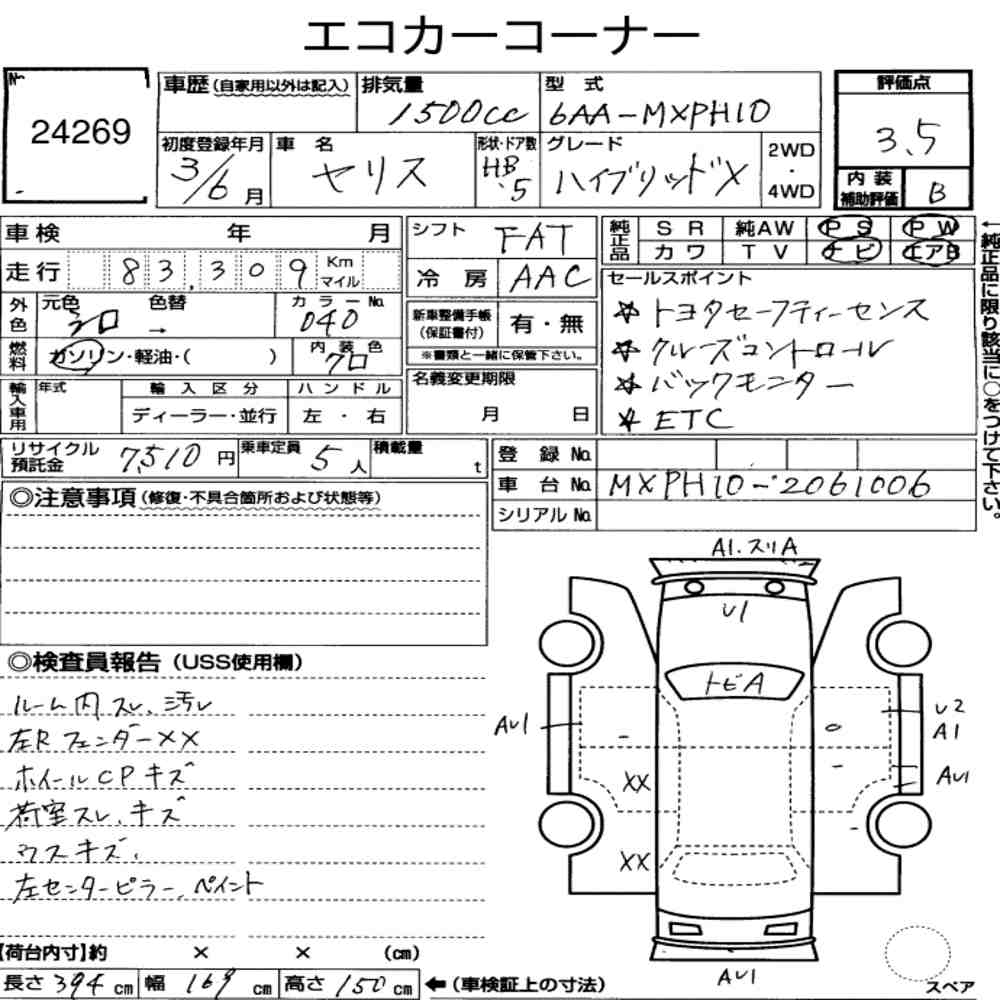 エコカーコーナー
No.
24269
車歴(自家用以外は記入)
排気量
1500cc
型 式
6AA-MXPH10
評価点
3.5
初度登録年月
3/6月
車 名
ヤリス
形状・ドア数
HB.5
グレード
ハイブリッドX
2WD
・
4WD
内装
補助評価
B
車検 年 月
シフト
FAT
純正品
SR
純AW
PS
PW
カワ
TV
ナビ
エアB
走行 83,309 Km マイル
冷房
AAC
セールスポイント
☆トヨタセーフティーセンス
☆クルーズコントロール
☆バックモニター
☆ETC
外色
元色 シロ → 色替
カラーNo.
040
新車整備手帳
(保証書付)
有・無
※書類と一緒に保管下さい。
燃料
ガソリン・軽油・( )
内装色
クロ
名義変更期限
月 日
輸入車用
年式
輸入区分
ハンドル
ディーラー・並行
左・右
←純正品に限り該当に○をつけて下さい。
リサイクル
預託金
7,510円
乗車定員
5人
積載量
t
登録No.
車台No.
MXPH10-2061006
シリアルNo.
◎注意事項(修復・不具合箇所および状態等)
◎検査員報告(USS使用欄)
ルーム内スレ、汚レ
左Rフェンダー××
ホイールCPキズ
荷室スレ、キズ
ウスキズ、
左センターピラー、ペイント
A1.スリA
U1
トビA
AU1
XX
XX
U2
A1
AU1
AU1
スペア
【荷台内寸】約 × × (cm)
長さ394cm 幅169cm 高さ150cm ←(車検証上の寸法)